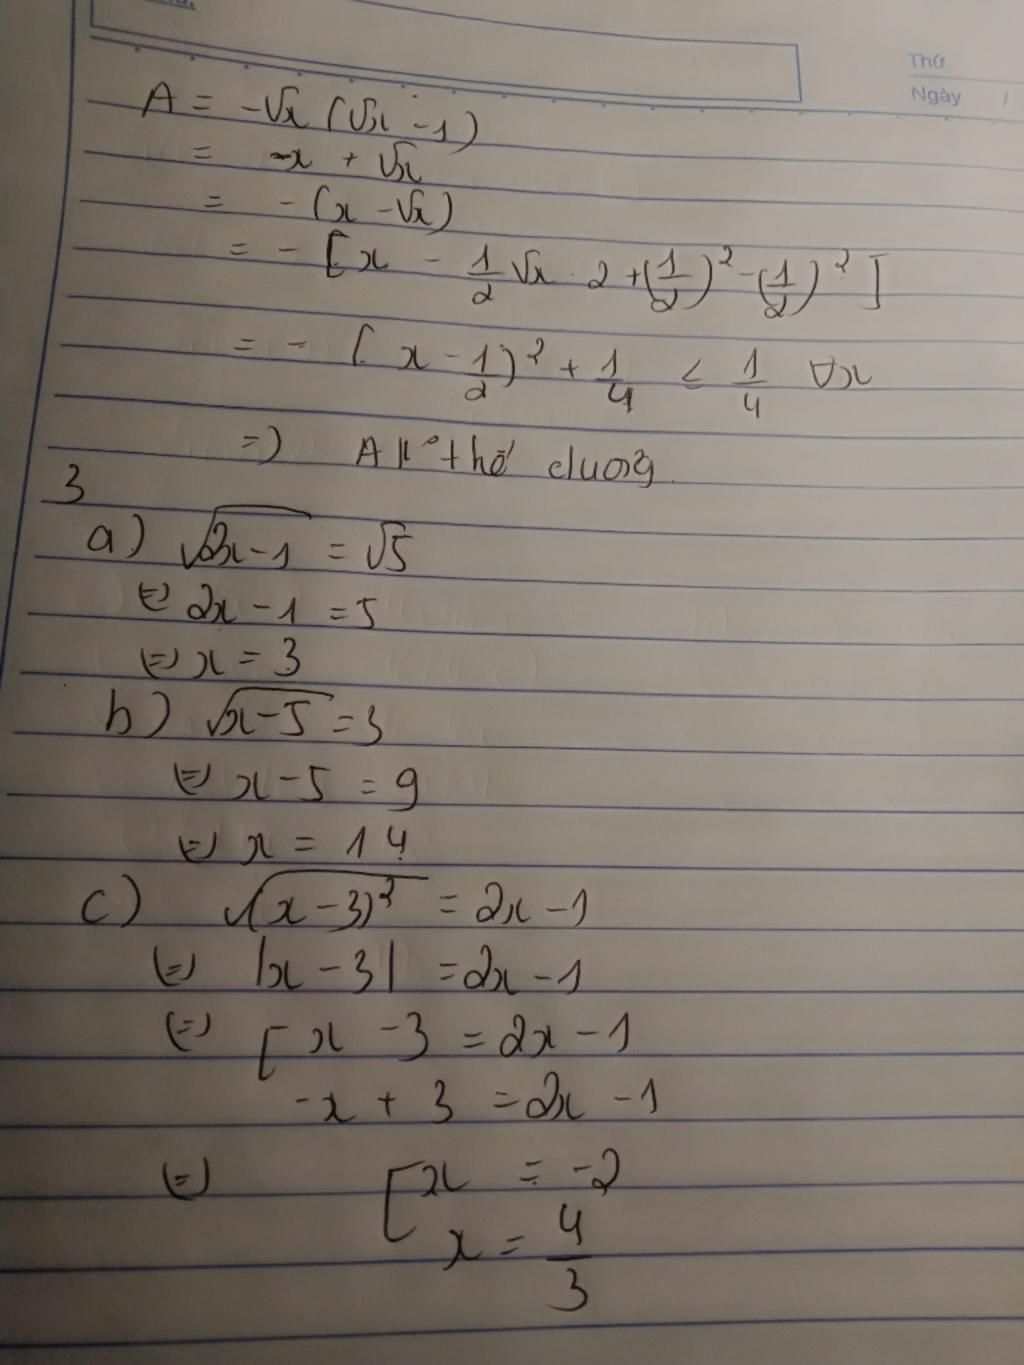 Thứ
Ngày /
A = -√x (√x - 1)
= -x + √x
= - (x - √x)
= - [x - 1/2 √x · 2 + (1/2)² - (1/2)²]
= - (x - 1/2)² + 1/4 ≤ 1/4 ∀x
=) A k° thể dương
3
a) √(2x-1) = √5
(=) 2x - 1 = 5
(=) x = 3
b) √(x-5) = 3
(=) x - 5 = 9
(=) x = 14
c) √((x-3)²) = 2x - 1
(=) |x - 3| = 2x - 1
(=) [ x - 3 = 2x - 1
-x + 3 = 2x - 1
(=) [ x = -2
x = 4/3